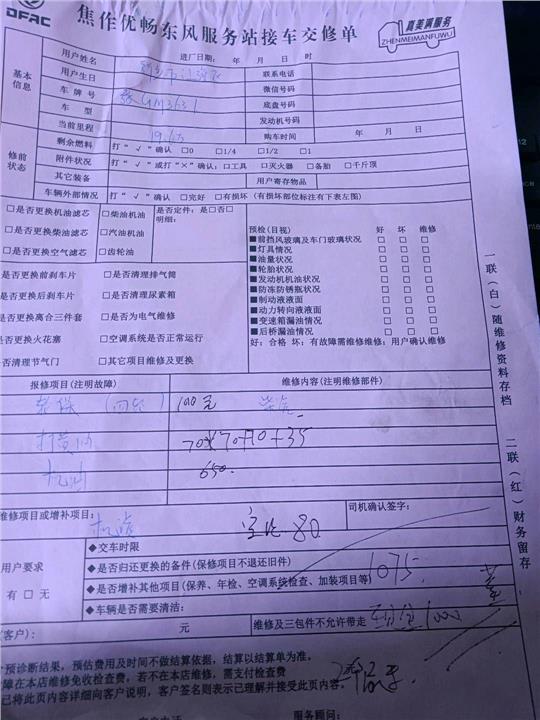 DFAC
焦作优畅东风服务站接车交修单
真美满服务
ZHENMEIMANFUWU
进厂日期: 年 月 日 时
基本信息
用户姓名
联系电话
用户生日
微信号码
车 牌 号
底盘号码
车 型
发动机号码
当前里程
购车时间 年 月 日
修前状态
剩余燃料 打“√”确认 □0 □1/4 □1/2 □1
附件状况 打“√”或打“×”确认:□工具 □灭火器 □备胎 □千斤顶
其它装备 用户寄存物品
车辆外部情况 打“√”确认 □完好 □有损坏(有损坏部位标注有下表左图)
□是否更换机油滤芯 □柴油机油 是否定件:是□否□
明细:
□是否更换柴油滤芯 □汽油机油
□是否更换空气滤芯 □齿轮油
预检(目视) 好 坏 维修
■前挡风玻璃及车门玻璃状况 □ □ □
■灯具情况 □ □ □
■油量状况 □ □ □
■轮胎状况 □ □ □
■发动机机油状况 □ □ □
■防冻防锈瓶状况 □ □ □
■制动液液面 □ □ □
■动力转向液液面 □ □ □
■变速箱漏油情况 □ □ □
■后桥漏油情况 □ □ □
好:合格 坏:有故障需维修维修:用户确认维修
是否更换前刹车片 □是否清理排气筒
是否更换后刹车片 □是否清理尿素箱
是否更换离合三件套 □是否为电气维修
是否更换火花塞 □空调系统是否正常运行
是否清理节气门 □其它项目维修及更换
报修项目(注明故障) 维修内容(注明维修部件)
100元
打黄油
机油 650.
维修项目或增补项目: 机滤 80
司机确认签字:
用户要求
有 □ 无
◆交车时限
◆是否归还更换的备件(保修项目不退还旧件)
◆是否增补其他项目(保养、年检、空调系统检查、加装项目等)
1075.
◆车辆是否需要清洁:
(客户): 元 维修及三包件不允许带走
预诊断结果,预估费用及时间不做结算依据,结算以结算单为准。
障在本店维修免收检查费,若不在本店维修,需支付检查费
已将此页内容详细向客户说明,客户签名则表示已理解并接受此页内容。
服务顾问:
一联(白)随维修资料存档
二联(红)财务留存